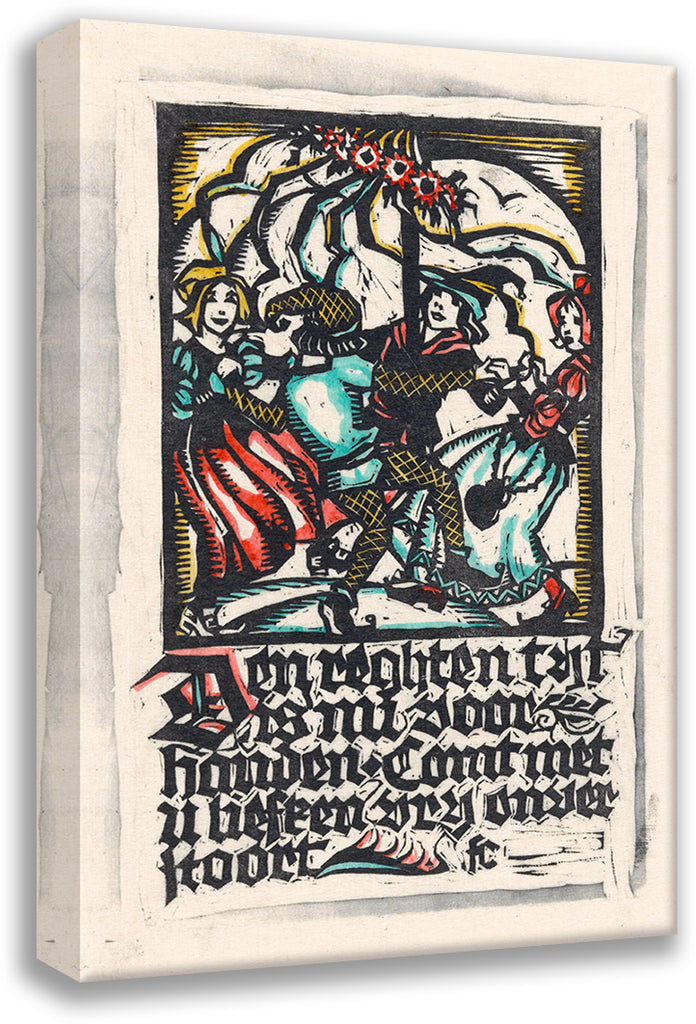 Den reghten tijt
is nu voor
handen. Comt met
u liefken vry onver
stoort
fc